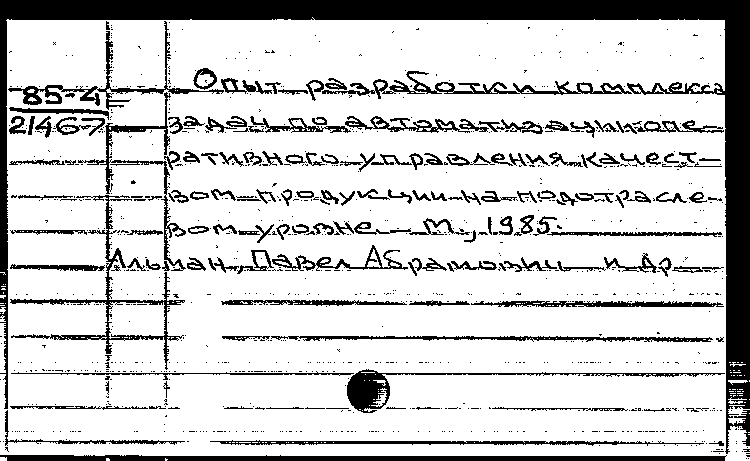 85-4
21467
Опыт разработки комплекса
задач по автоматизации опе-
ративного управления качест-
вом продукции на подотрасле-
вом уровне. — М., 1985.
Альман, Павел Абрамович и др